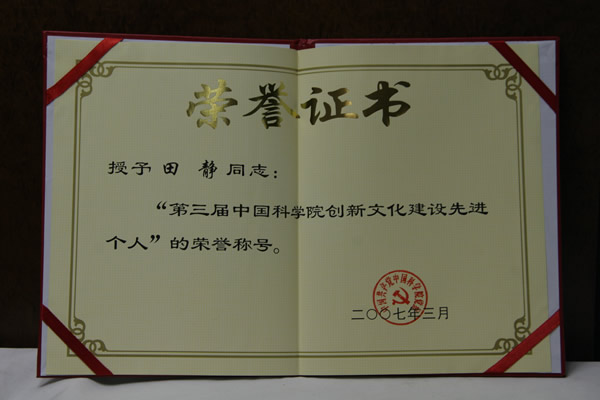 荣誉证书
授予田 静同志：
“第三届中国科学院创新文化建设先进
个人”的荣誉称号。
二〇〇七年三月